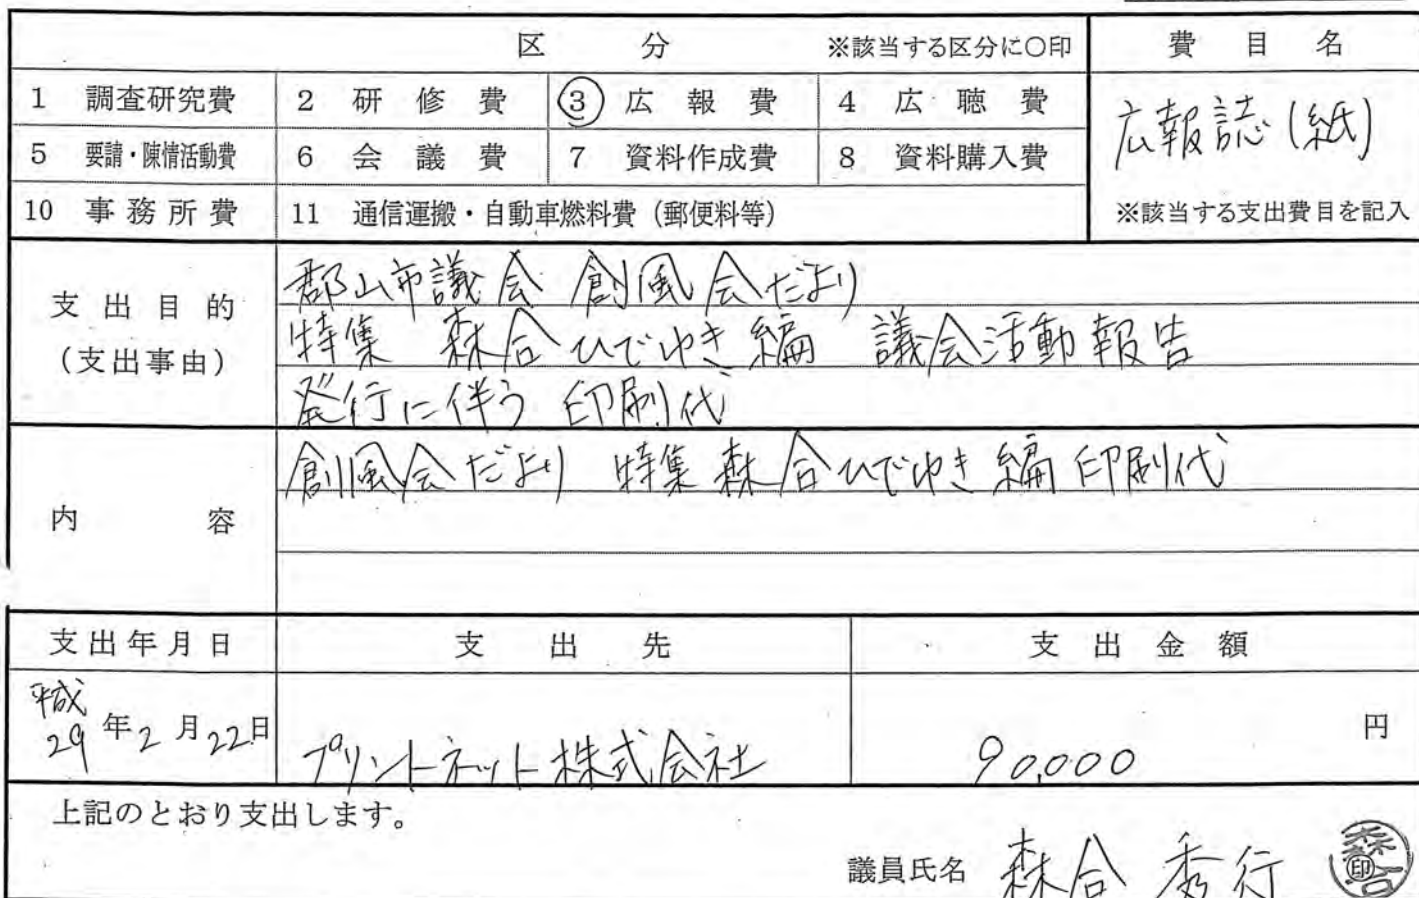 区 分 ※該当する区分に○印 費 目 名
1 調査研究費 2 研 修 費 ③ 広 報 費 4 広 聴 費
広報誌(紙)
5 要請・陳情活動費 6 会 議 費 7 資料作成費 8 資料購入費
10 事 務 所 費 11 通信運搬・自動車燃料費(郵便料等) ※該当する支出費目を記入
郡山市議会 創風会だより
支 出 目 的
特集 森合ひでゆき編 議会活動報告
(支出事由)
発行に伴う 印刷代
創風会だより 特集 森合ひでゆき編 印刷代
内 容
支出年月日 支 出 先 支 出 金 額
平成
29年2月22日 プリントネット株式会社 90,000 円
上記のとおり支出します。
議員氏名 森合 秀行 印
森合